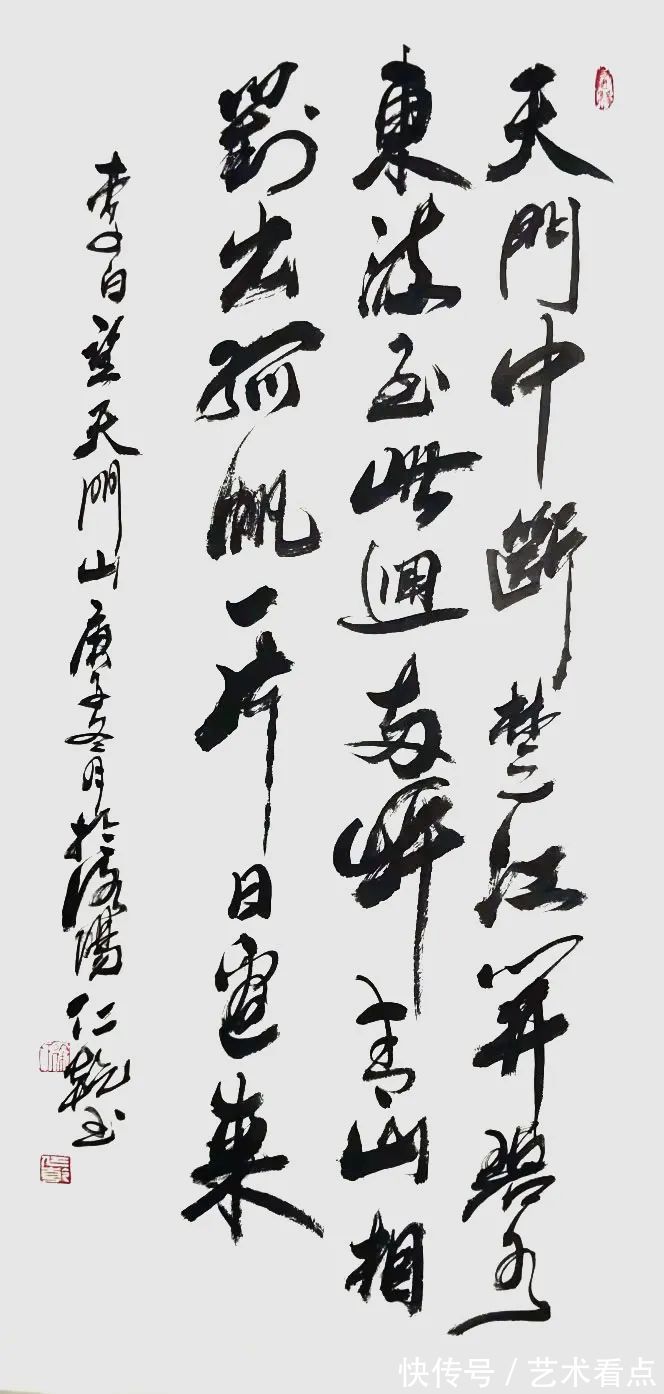 天門中斷楚江開碧水
東流至此迴兩岸青山相
對出孤帆一片日邊來
李白望天門山庚子冬月於洛陽仁乾书
快传号 / 艺术看点